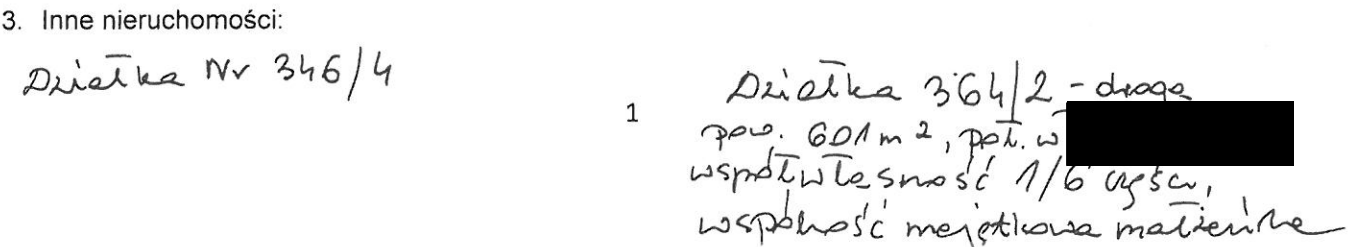 3. Inne nieruchomości:
Działka Nr 346/4
1
Działka 364/2 - droga
pow. 601 m², poł. w
współwłasność 1/6 części,
wspólność majątkowa małżeńska